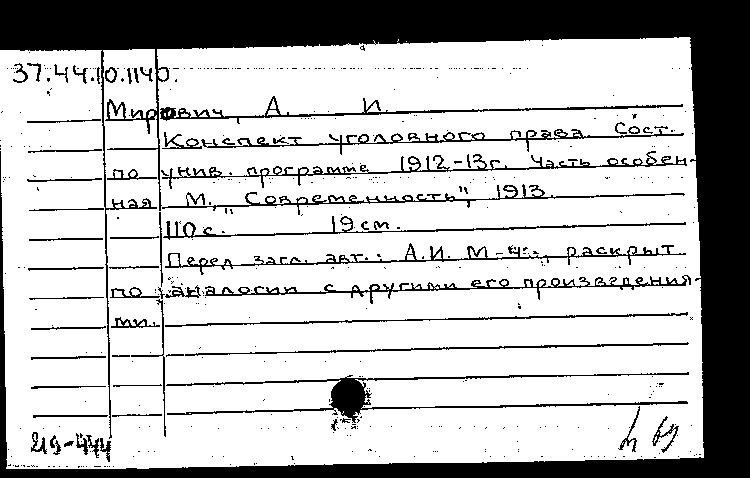 37.44.10.1140.
Мирович, А. И.
Конспект уголовного права. Сост.
по унив. программе 1912-13г. Часть особен-
ная М., "Современность", 1913.
110 с. 19 см.
Перед загл. авт.: А.И. М-ч., раскрыт
по аналогии с другими его произведения-
ми.
219-444